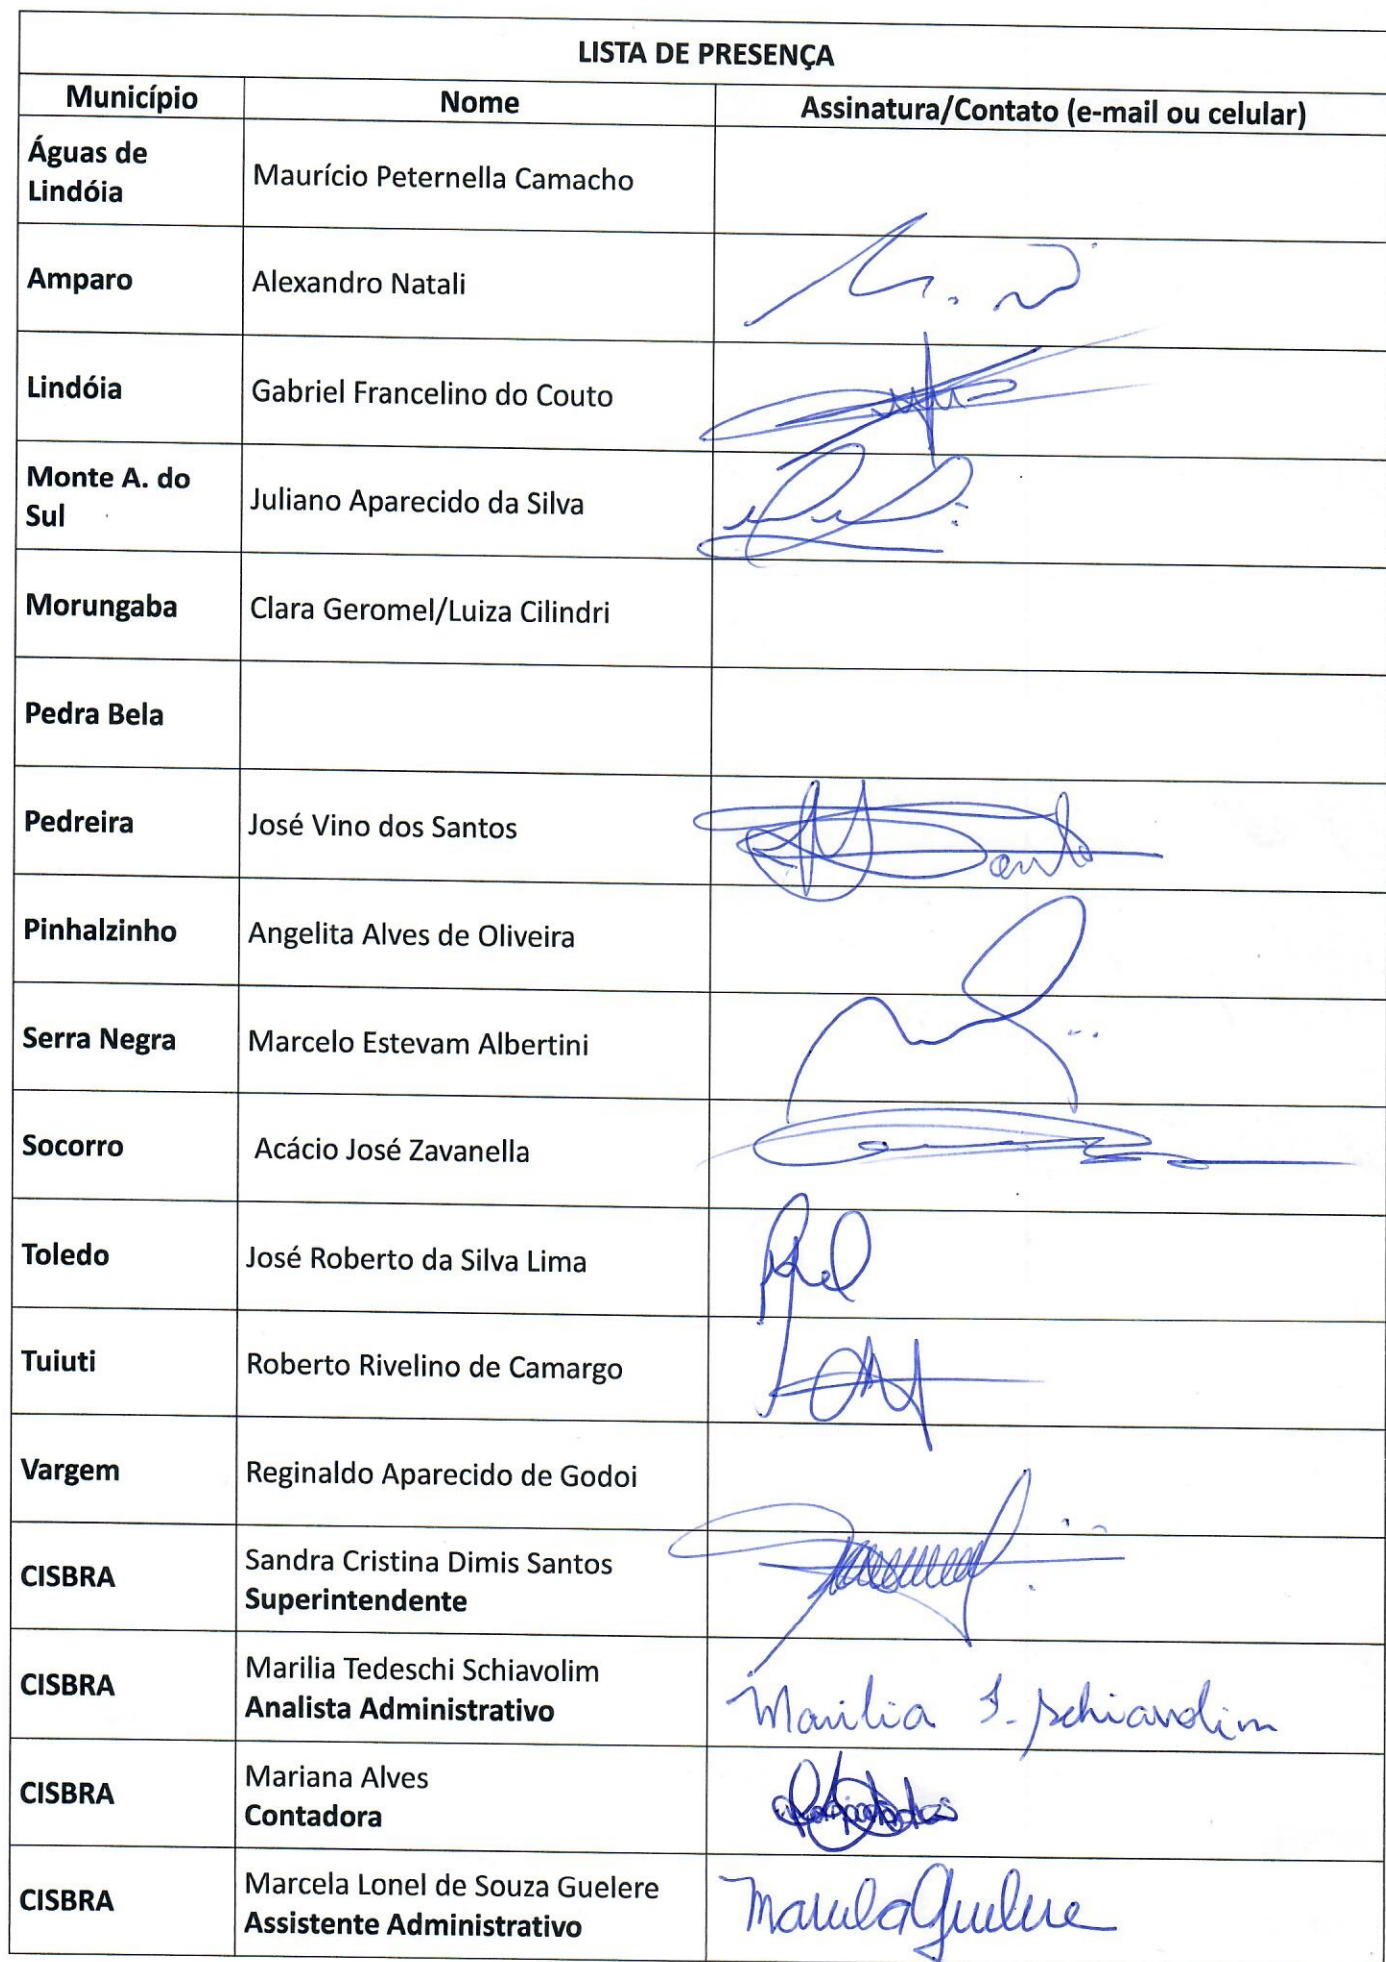 LISTA DE PRESENÇA
Município Nome Assinatura/Contato (e-mail ou celular)
Águas de
Lindóia
Maurício Peternella Camacho
Amparo Alexandro Natali
Lindóia Gabriel Francelino do Couto
Monte A. do
Sul
Juliano Aparecido da Silva
Morungaba Clara Geromel/Luiza Cilindri
Pedra Bela
Pedreira José Vino dos Santos
Pinhalzinho Angelita Alves de Oliveira
Serra Negra Marcelo Estevam Albertini
Socorro Acácio José Zavanella
Toledo José Roberto da Silva Lima
Tuiuti Roberto Rivelino de Camargo
Vargem Reginaldo Aparecido de Godoi
CISBRA
Sandra Cristina Dimis Santos
Superintendente
CISBRA
Marilia Tedeschi Schiavolim
Analista Administrativo
Marilia T. Schiavolim
CISBRA
Mariana Alves
Contadora
CISBRA
Marcela Lonel de Souza Guelere
Assistente Administrativo
Marcela Guelere